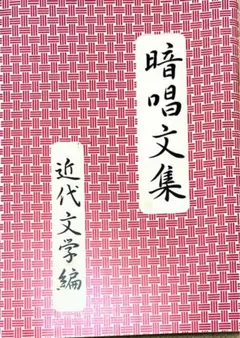 暗唱文集
近代文学編